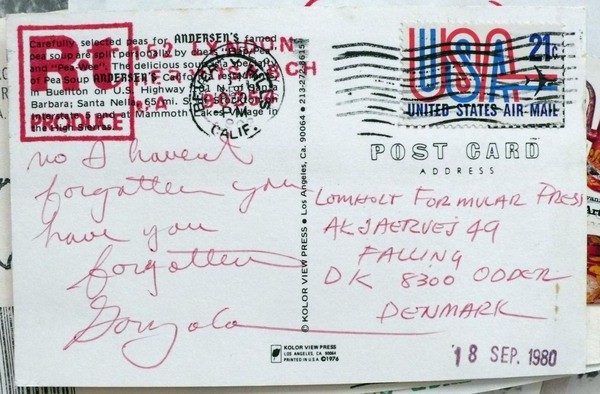 Carefully selected peas for ANDERSEN'S famed
pea soup are split personally by chefs "Hap-Pea"
and "Pea-Wee". The delicious soup is a specialty
of Pea Soup ANDERSEN'S
Buellton on U.S. Highway 101 N. of Santa
Barbara; Santa Nella, 65 mi. S.
5 and at Mammoth Lakes Village in
the High Sierras.
PRODUCE
CALIF.
PM
USA 21c
UNITED STATES AIR-MAIL
POST CARD
ADDRESS
no I havent
forgotten you
have you
forgotten
Gonzala
LOMHOLT FORMULAR PRESS
AKJAERVEJ 49
FALLING
DK 8300 ODDER
DENMARK
© KOLOR VIEW PRESS • Los Angeles, Ca. 90064 • 213:272-8615
KOLOR VIEW PRESS
LOS ANGELES, CA. 90064
PRINTED IN U.S.A. ©1976
18 SEP. 1980